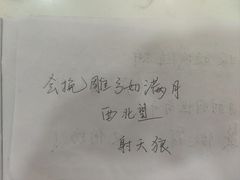 会挽雕弓如满月
西北望
射天狼